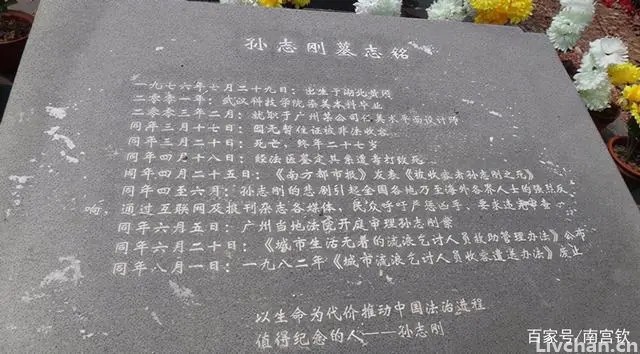 孙志刚墓志铭
一九七六年七月二十九日：出生于湖北黄冈
二零零一年：武汉科技学院染美本科毕业
二零零三年二月：就职于广州某公司任美术平面设计师
同年三月十七日：因无暂住证被非法收容
同年三月二十日：死亡，终年二十七岁
同年四月十八日：经法医鉴定其系遭毒打致死
同年四月二十五日：《南方都市报》发表《被收容者孙志刚之死》
同年四至六月：孙志刚的悲剧引起全国各地乃至海外各界人士的强烈反
响，通过互联网及报刊杂志各媒体，民众呼吁严惩凶手、要求违宪审查
同年六月五日：广州当地法院开庭审理孙志刚案
同年六月二十日：《城市生活无着的流浪乞讨人员救助管理办法》公布
同年八月一日：一九八二年《城市流浪乞讨人员收容遣送办法》废止
以生命为代价推动中国法治进程
值得纪念的人——孙志刚
百家号/南宫钦
Livchan.cn